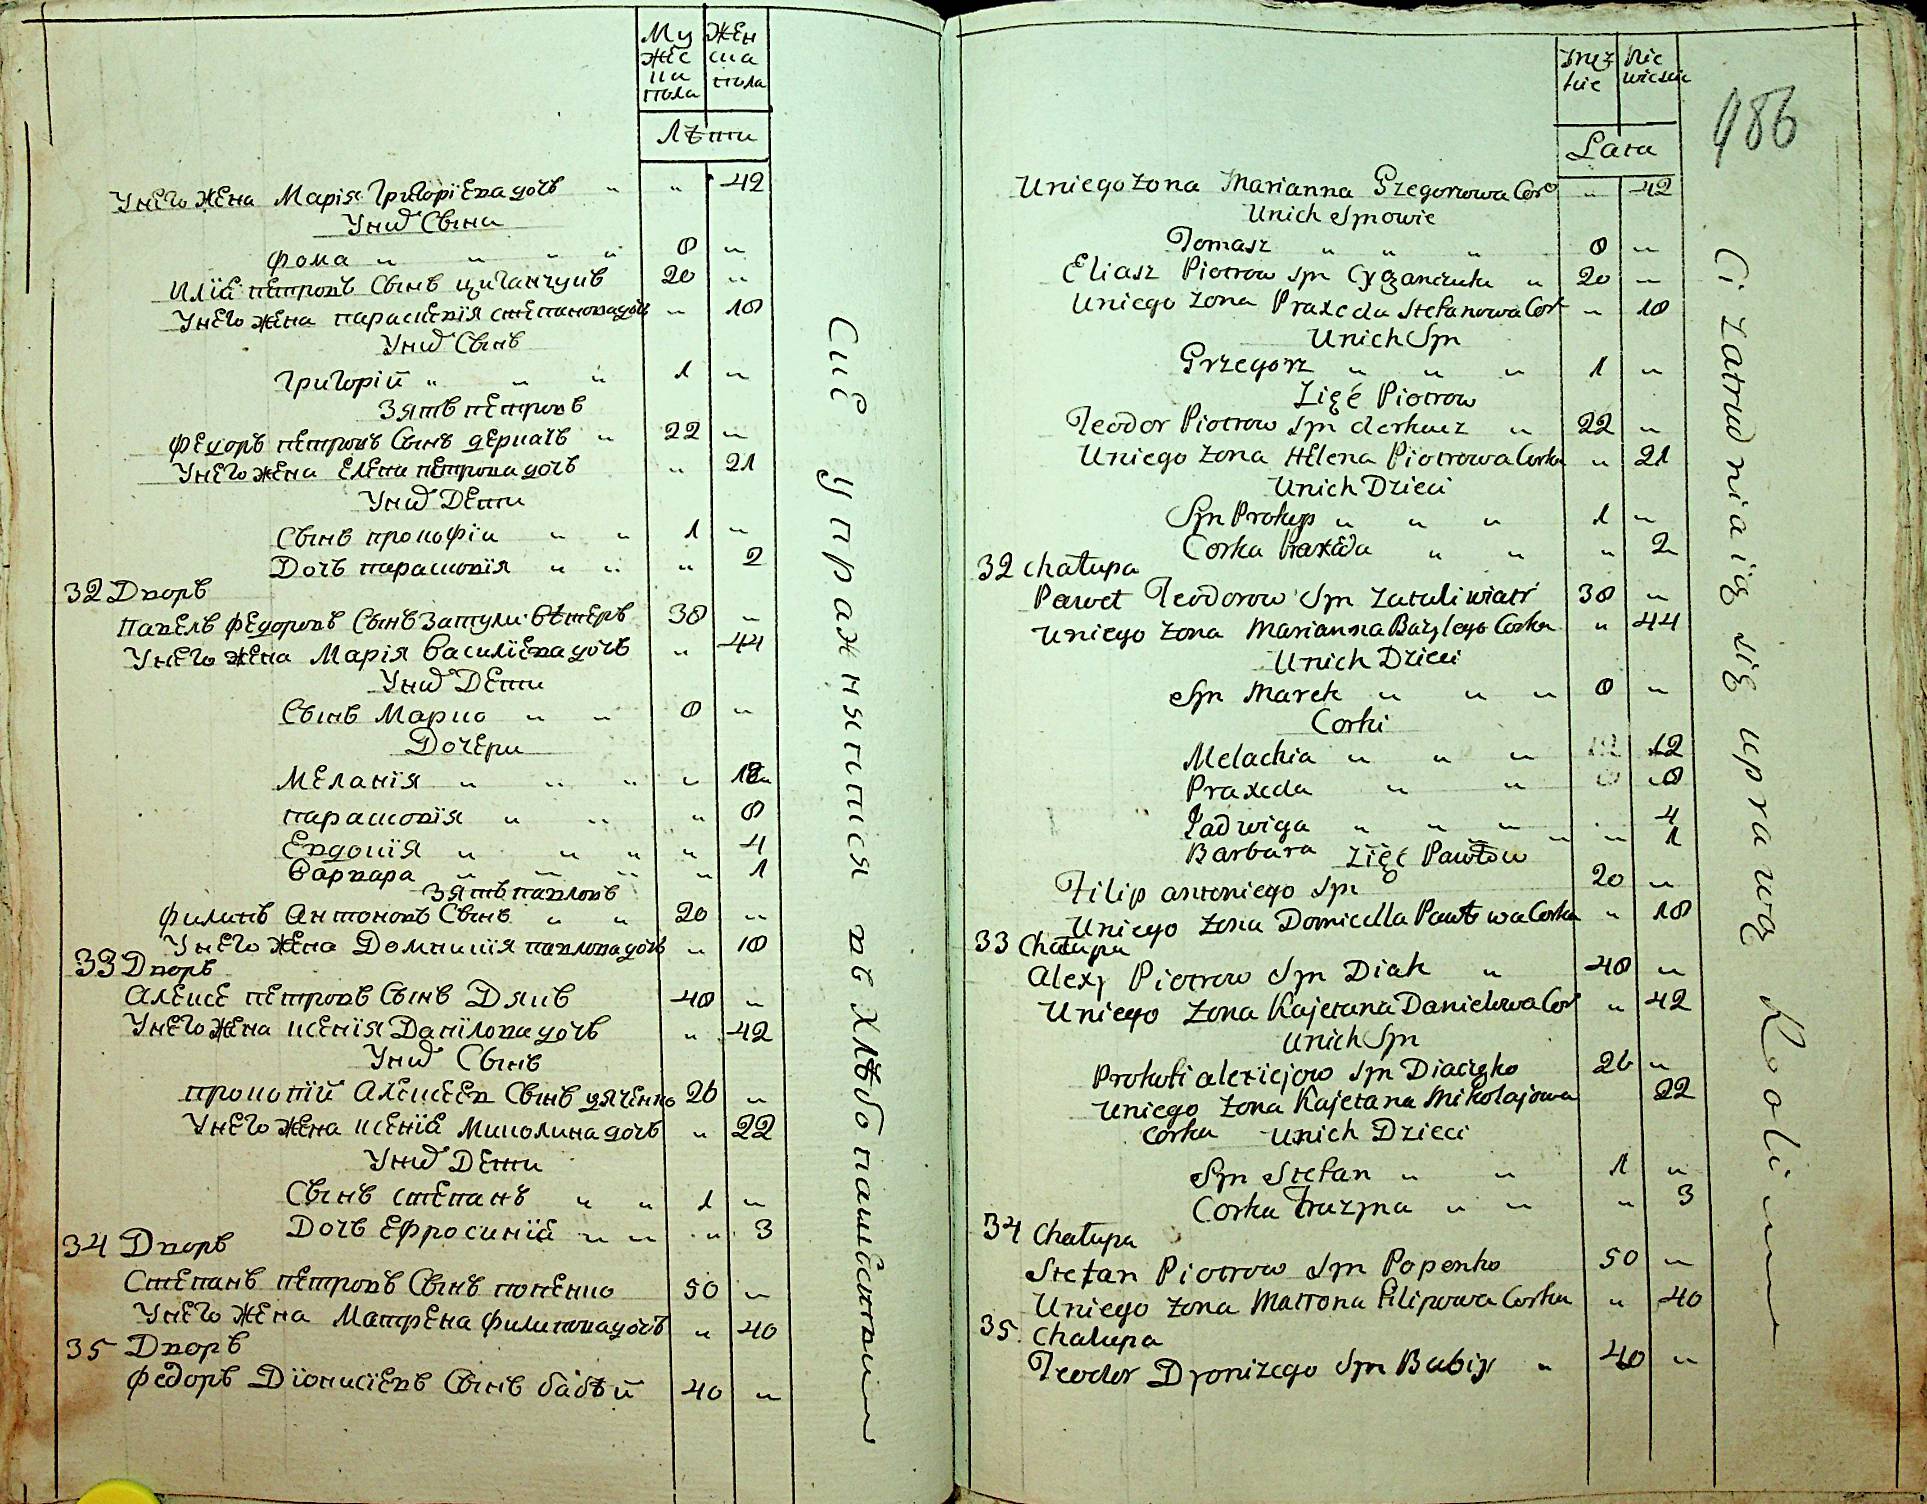 Му жес ка пола
Жен ска пола
Лѣти
Унего жена Марія Григоріева дочь " " 42
Уних Сыни
Фома " " " " 8 "
Илїа петровъ Сынъ циганчукъ 20 "
Унего жена параскевїя степанова дочь " 18
Уних Сынъ
Григорїй " " " 1 "
Зять петровъ
Федоръ петровъ Сынъ деркачъ " 22 "
Унего жена Елена петрова дочь " 21
Уних Дети
Сынъ прокофїи " " 1 "
Дочь парасковїя " " " 2
32 Дворъ
Павелъ федоровъ Сынъ Затули вѣтеръ 38 "
Унего жена Марїя василїева дочь " 44
Уних Дети
Сынъ Марко " " 8 "
Дочери
Меланїя " " " " 12
парасковїя " " " 8
Евдокїя " " " " 4
Варвара " " " " 1
Зять павловъ
филипъ Антоновъ Сынъ " " 20 "
Унего жена Домникїя павлова дочь " 18
33 Дворъ
Алексе петровъ Сынъ Дякъ 48 "
Унего жена ксенїя Данїлова дочь " 42
Уних Сынъ
прокопїй Алексеев Сынъ дяченко 26 "
Унего жена ксенїа Миколина дочь " 22
Уних Дети
Сынъ степанъ " " 1 "
Дочь Ефросинїа " " " 3
34 Дворъ
Степанъ петровъ Сынъ попенко 50 "
Унего жена Матрена филипова дочь " 40
35 Дворъ
федоръ Дїонисїевъ Сынъ бабѣй 40 "
Сие упражняютися въ хлѣбопашьствии
Męz kie
Nie wieskie
486
Lata
Uniego żona Marianna Grzegorzowa Cor " 42
Unich Synowie
Tomasz " " " 8 "
Eliasz Piotrow Syn Cyganczuk " 20 "
Uniego żona Praxeda Stefanowa Cor " 18
Unich Syn
Grzegorz " " " 1 "
Zięć Piotrow
Teodor Piotrow Syn derkacz " 22 "
Uniego żona Helena Piotrowa Corka " 21
Unich Dzieci
Syn Prokop " " " 1 "
Corka Praxeda " " " 2
32 chałupa
Paweł Teodorow Syn Zatuli wiatr 38 "
Uniego żona Marianna Bazylego Corka " 44
Unich Dzieci
Syn Marek " " " 8 "
Corki
Melachia " " " 12
Praxeda " " 8
Jadwiga " " " 4
Barbara " " 1
Zięć Pawłow
Filip antoniego Syn 20 "
Uniego żona Domicella Pawłowa Corka " 18
33 Chałupa
Alexy Piotrow Syn Diak " 48 "
Uniego żona Kajetana Danielowa Cor " 42
Unich Syn
Prokofi alexiejow Syn Diaczko 26 "
Uniego żona Kajetana Mikołajowa 22
Corka Unich Dzieci
Syn Stefan " " 1 "
Corka Fruzyna " " " 3
34 Chałupa
Stefan Piotrow Syn Popenko 50 "
Uniego żona Matrona Filipowa Corka " 40
35. Chałupa
Teodor Dyonizego Syn Babiy " 40 "
Ci zatrudniaią się uprawą Roli